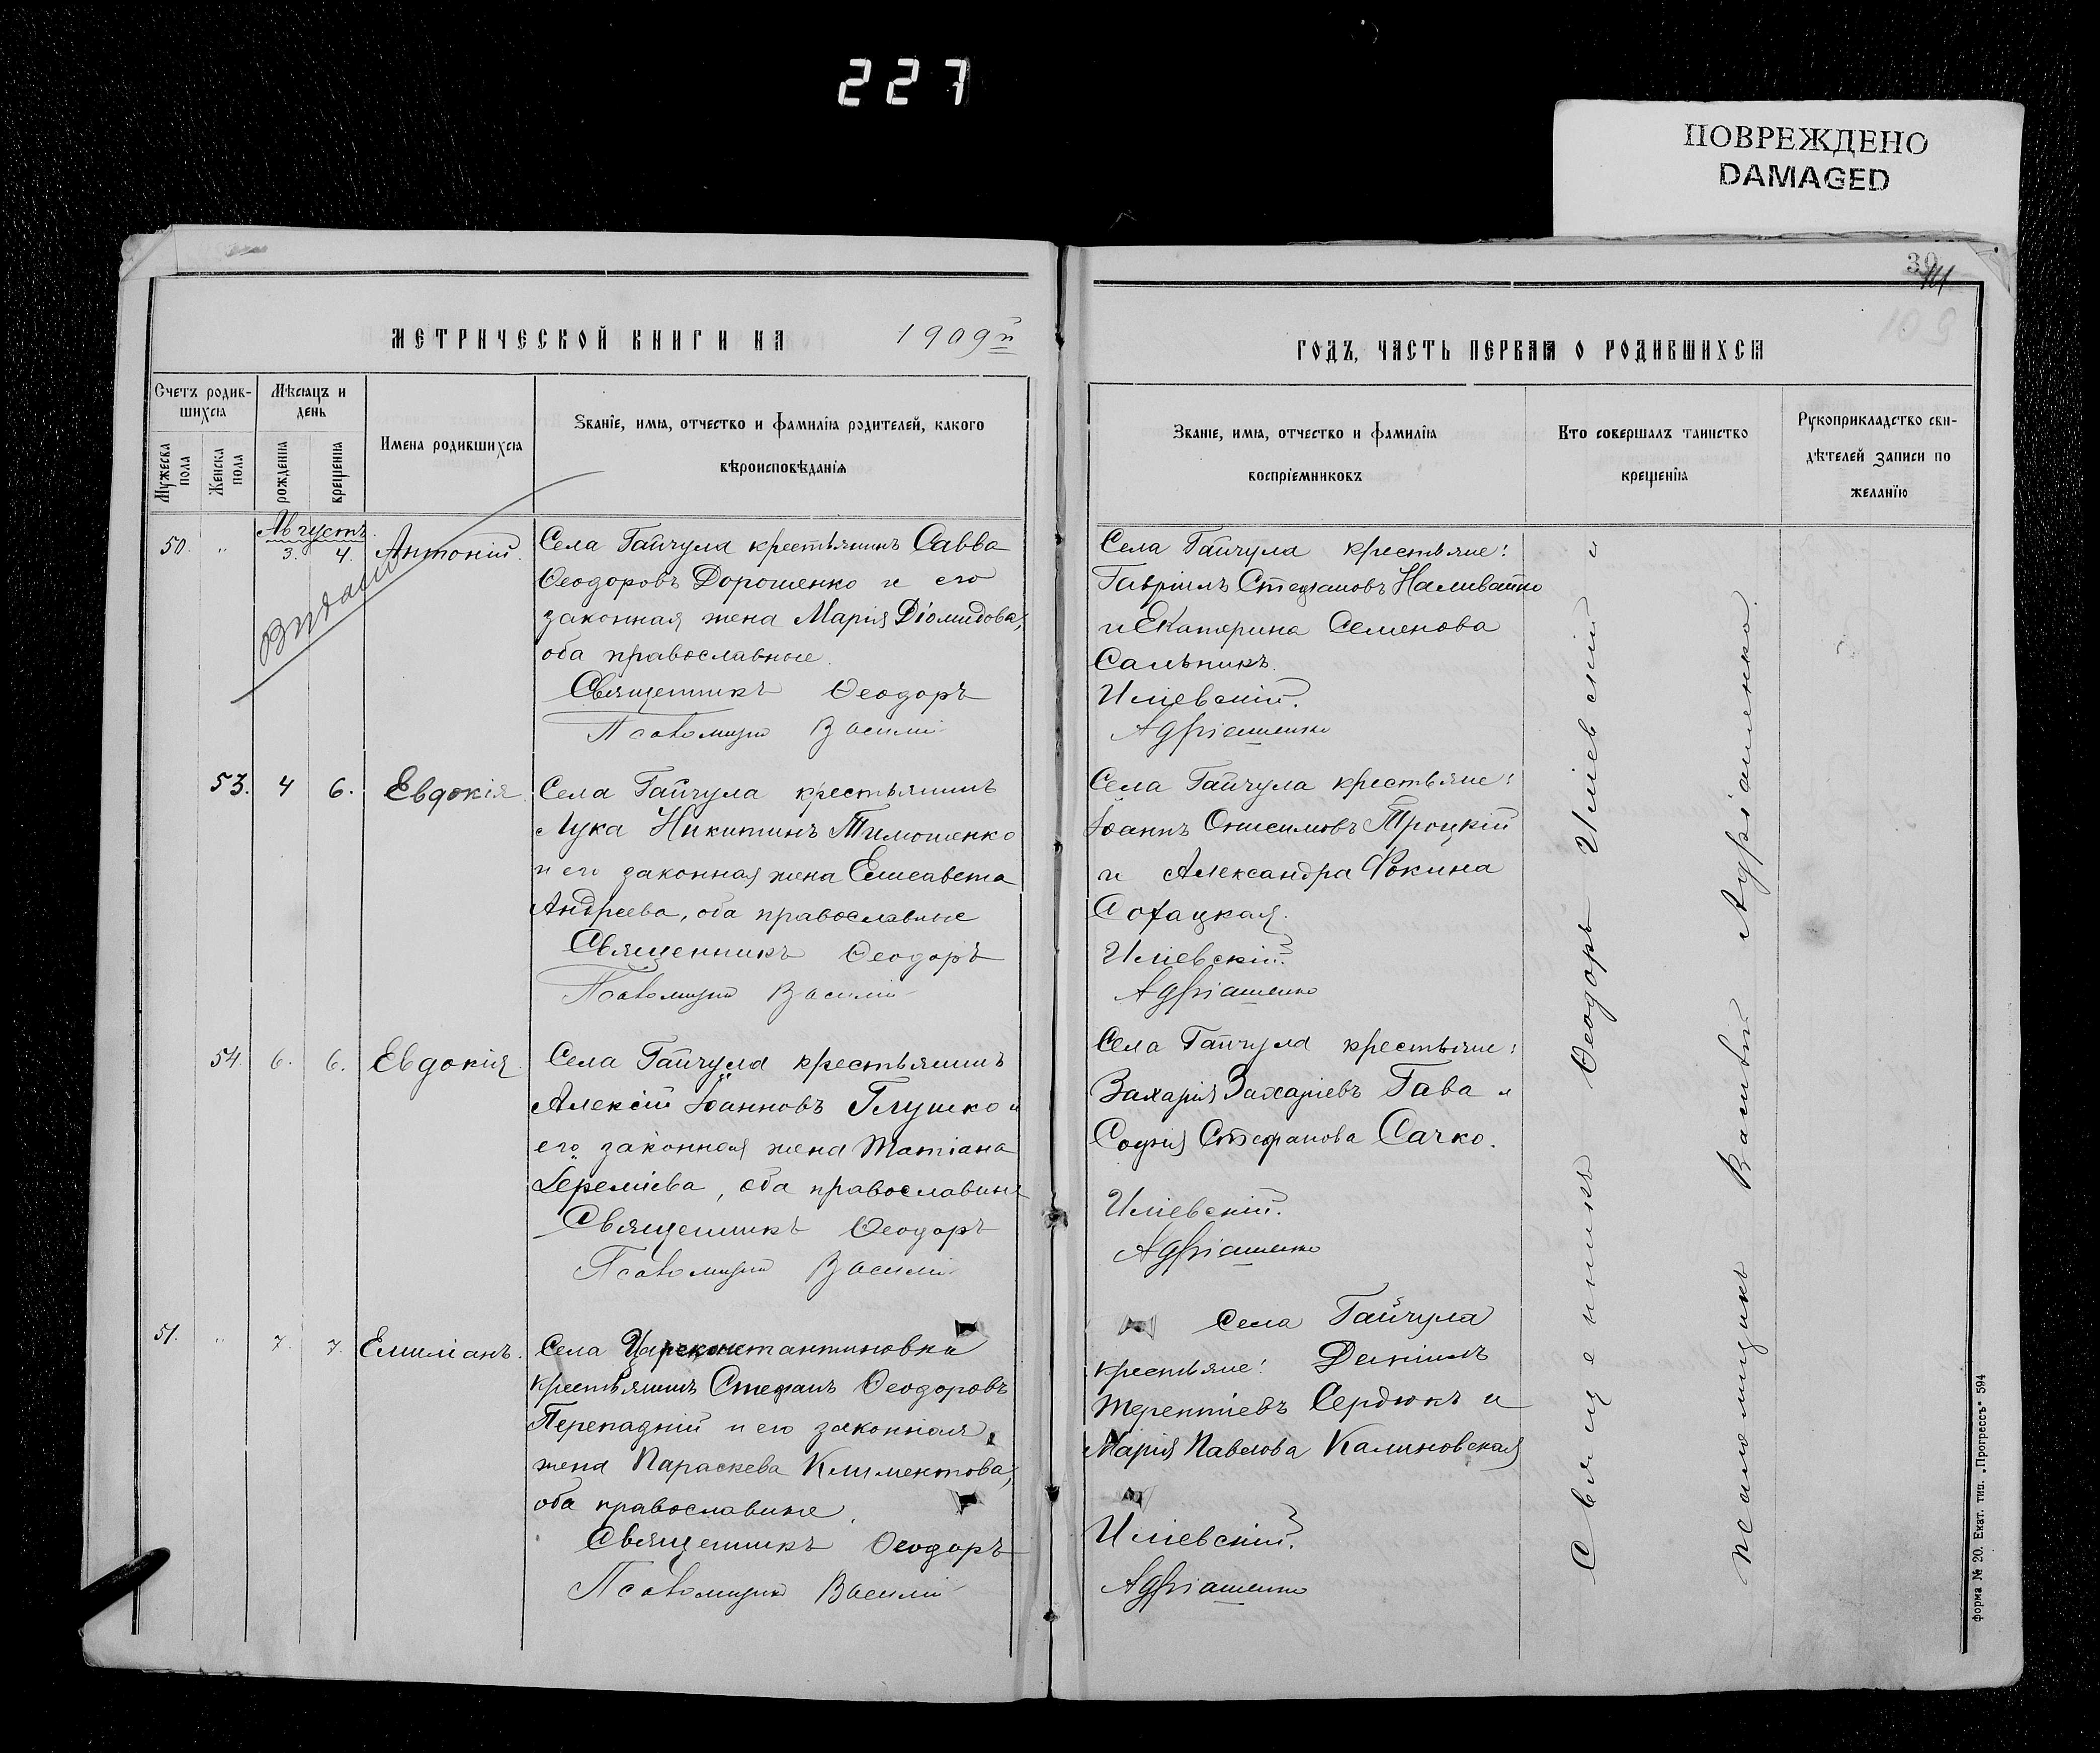 227
ПОВРЕЖДЕНО
DAMAGED
39
109
МЕТРИЧЕСКОЙ КНИГИ НА 1909й
ГОДЪ, ЧАСТЬ ПЕРВАЯ О РОДИВШИХСЯ
Счетъ родив-
шихся
Мужеска
пола
Женска
пола
Мѣсяцъ и
день
рожденія
крещенія
Имена родившихся
Званіе, имя, отчество и фамилія родителей, какого
вѣроисповѣданія
Званіе, имя, отчество и фамилія
воспріемниковъ
Кто совершалъ таинство
крещенія
Рукоприкладство сви-
дѣтелей записи по
желанію
Августъ
50. „ 3. 4. Антоній.
Села Гайчула крестьянинъ Савва
Ѳеодоровъ Дорошенко и его
законная жена Марія Діомидова,
оба православные.
Священникъ Ѳеодоръ
Псаломщикъ Василій
Села Гайчула крестьяне:
Гавріилъ Стефановъ Наливайко
и Екатерина Семенова
Сальникъ.
Иліевскій.
Адріашенко
53. 4 6. Евдокія.
Села Гайчула крестьянинъ
Лука Никитинъ Тимошенко
и его законная жена Елисавета
Андреева, оба православные
Священникъ Ѳеодоръ
Псаломщикъ Василій
Села Гайчула крестьяне:
Іоаннъ Онисимовъ Троцкій
и Александра Фокина
Сохацкая.
Иліевскій.
Адріашенко
54. 6. 6. Евдокія.
Села Гайчула крестьянинъ
Алексій Іоанновъ Глушко и
его законная жена Татіана
Іереміева, оба православные
Священникъ Ѳеодоръ
Псаломщикъ Василій
Села Гайчула крестьяне:
Захарія Захаріевъ Гава и
Софія Стефанова Сачко.
Иліевскій.
Адріашенко
51. „ 7. 7. Емиліанъ.
Села Цареконстантиновки
крестьянинъ Стефанъ Ѳеодоровъ
Перепадній и его законная
жена Параскева Климентова,
оба православные.
Священникъ Ѳеодоръ
Псаломщикъ Василій
Села Гайчула
крестьяне: Даніилъ
Терентіевъ Сердюкъ и
Марія Павлова Калиновская
Иліевскій.
Адріашенко
Священникъ Ѳеодоръ Иліевскій и
псаломщикъ Василій Адріашенко.
форма № 20. Екат. тип. „Прогрессъ" 594